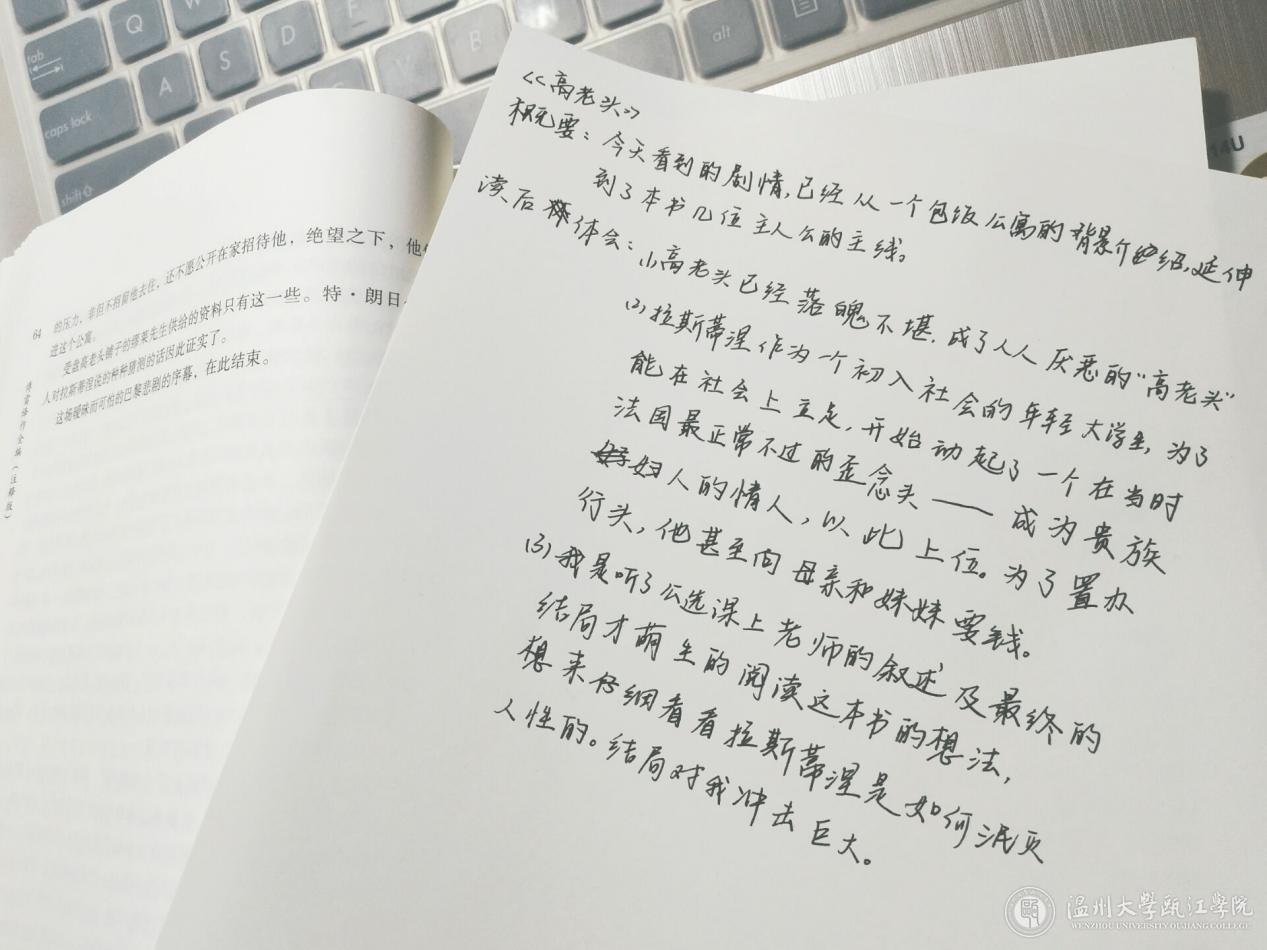 tab
Q
W
A
S
D
F
V
B
alt
caps lock
shift
14U
的压力，非但不招留他去住，还不愿公开在家招待他，绝望之下，他
进这个公寓。
受盘高老头铺子的缪莱先生供给的资料只有这一些。特·朗日
人对拉斯蒂涅说的种种猜测的话因此证实了。
这场暧昧而可怕的巴黎悲剧的序幕，在此结束。
64
傅雷译作全编（注释版）
《高老头》
概要：今天看到的剧情，已经从一个包饭公寓的背景介绍，延伸
到了本书几位主人公的主线。
读后体会：(1)高老头已经落魄不堪，成了人人厌恶的“高老头”
(2)拉斯蒂涅作为一个初入社会的年轻大学生，为了
能在社会上立足，开始动起了一个在当时
法国最正常不过的歪念头——成为贵族
妇人的情人，以此上位。为了置办
行头，他甚至向母亲和妹妹要钱。
(3)我是听了公选课上老师的叙述及最终的
结局才萌生的阅读这本书的想法，
想来仔细看看拉斯蒂涅是如何泯灭
人性的。结局对我冲击巨大。
温州大學甌江學院
WENZHOU UNIVERSITY OUJIANG COLLEGE